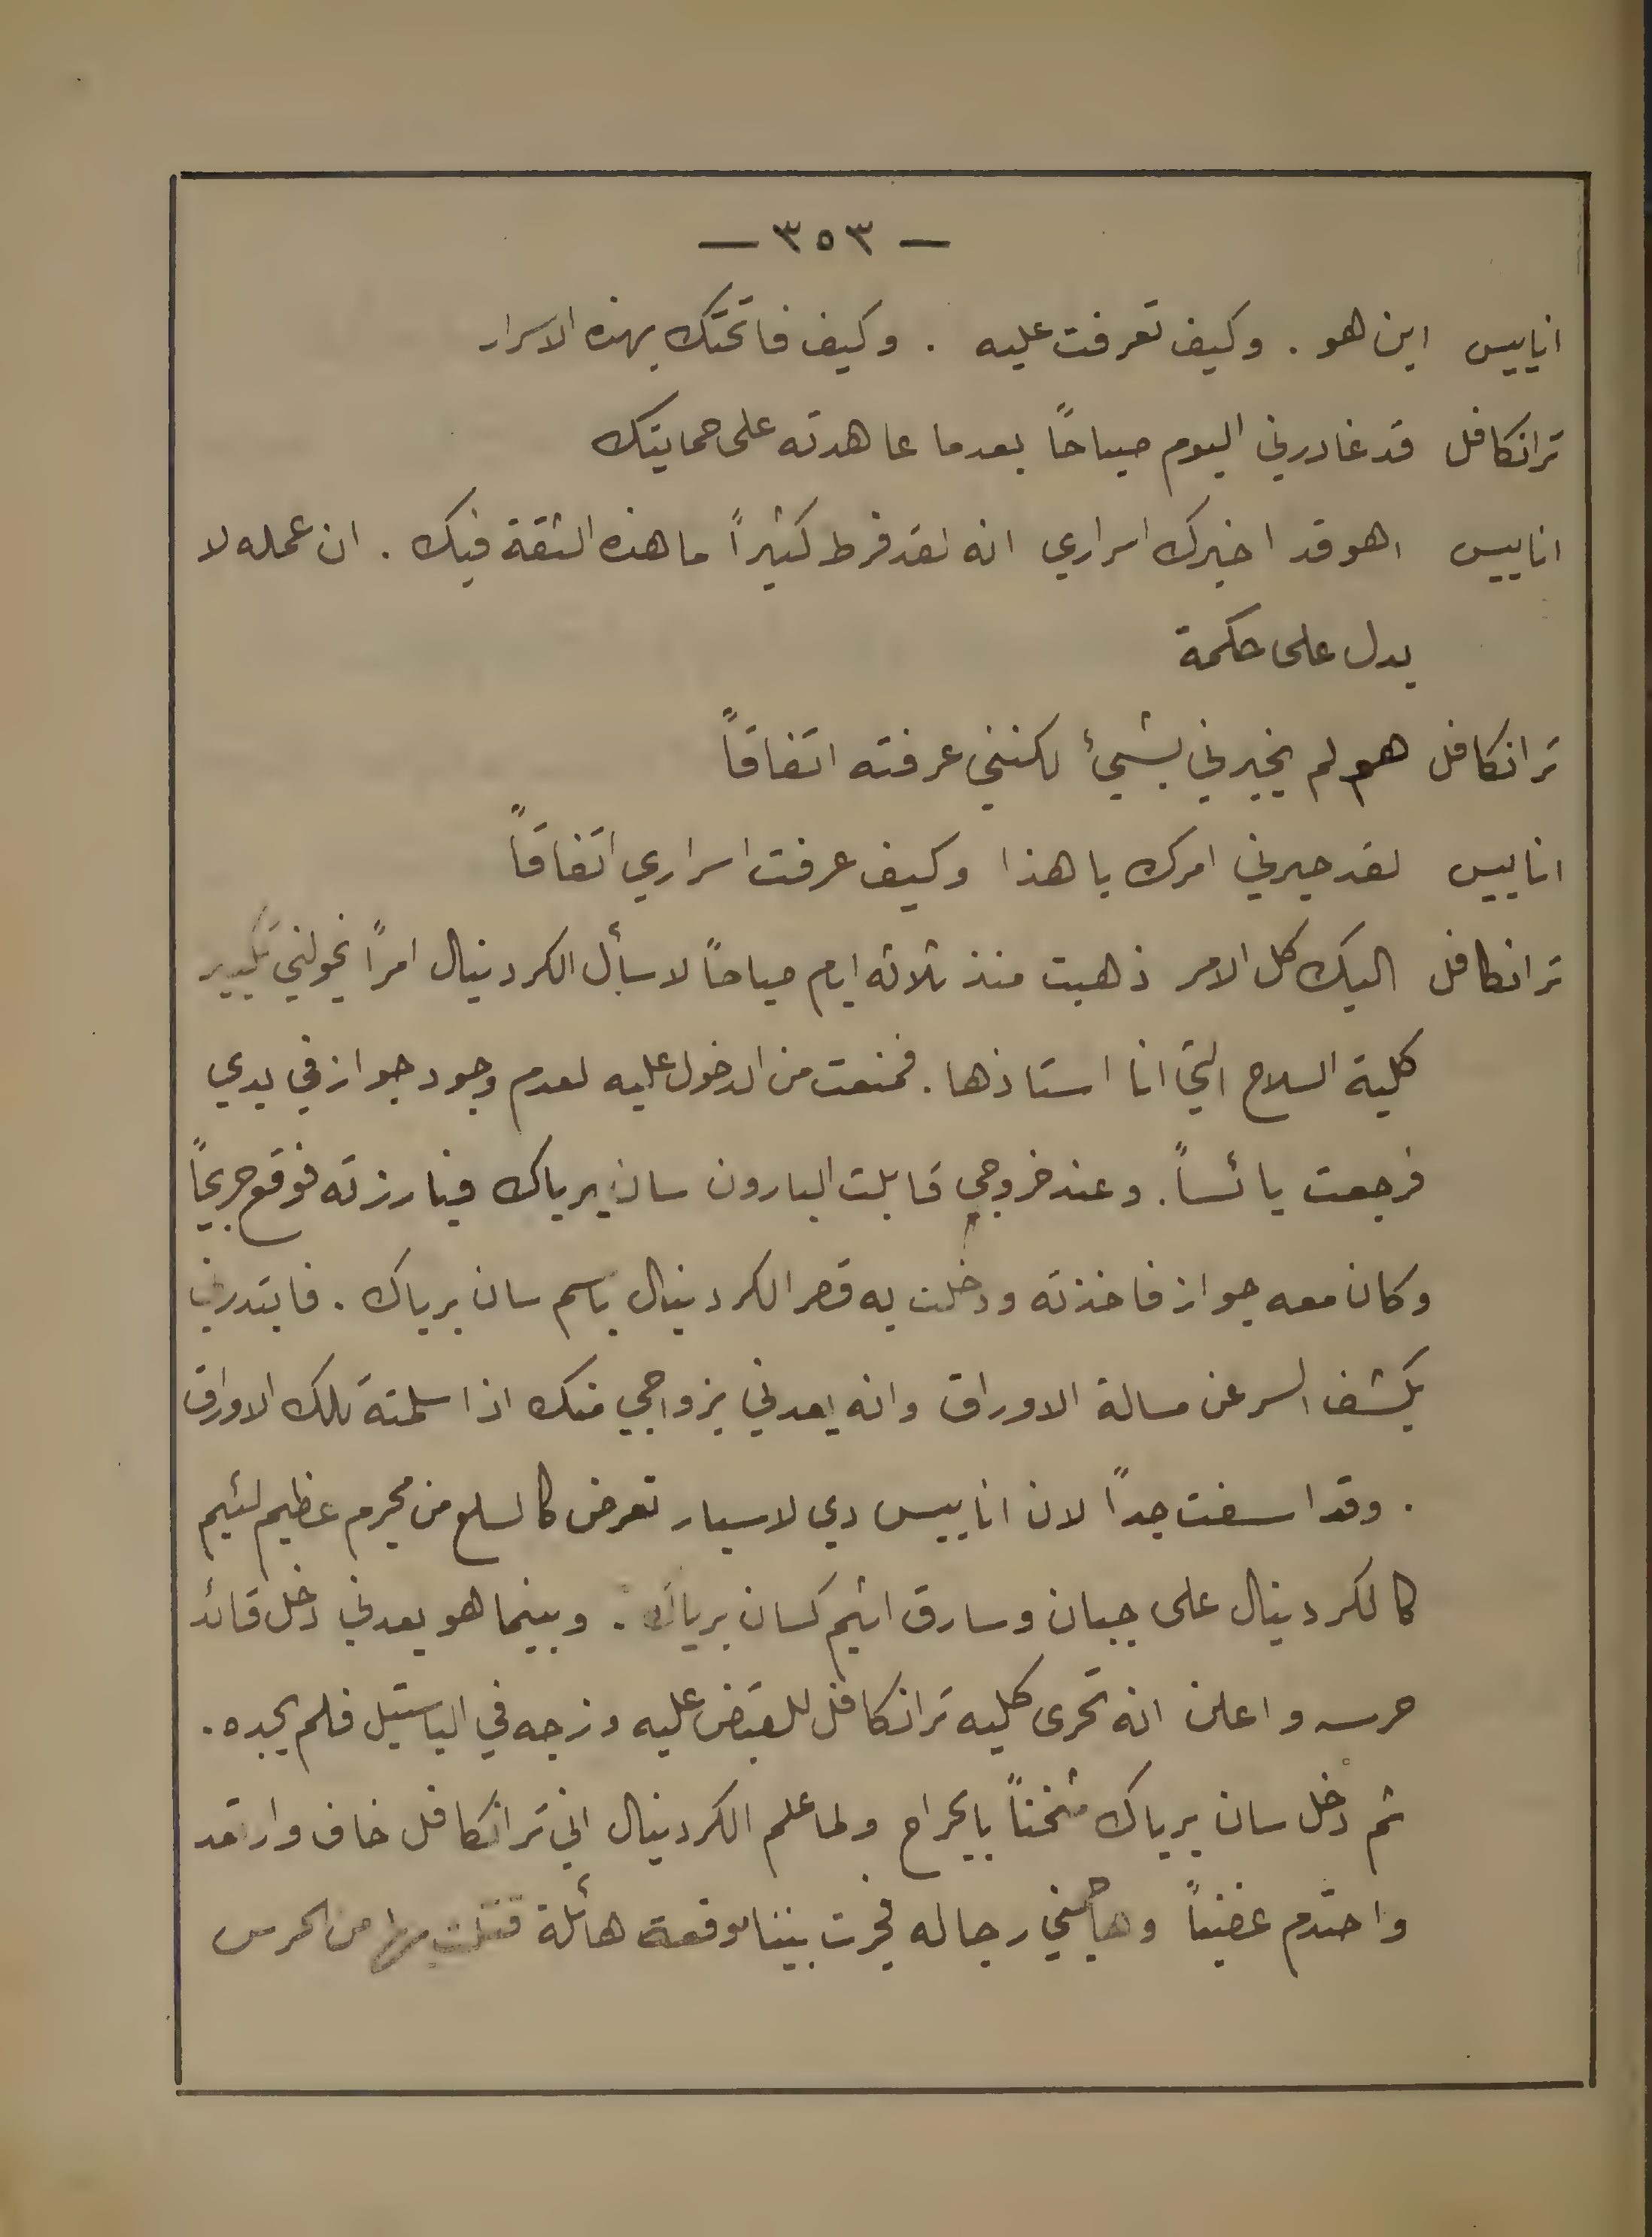 — ٣٥٣ —
اناييس اين هو . وكيف تعرفت عليه . وكيف فاتحتك بهذه الاسرار
ترانكافل قد غادرني اليوم صباحاً بعدما عاهدته على حمايتك
اناييس اهو قد اخبرك اسراري انه لقد فرط كثيراً ما هذه الثقة فيك . ان عمله لا
يدل على حكمة
ترانكافل هو لم يخبرني بشيئ لكنني عرفته اتفاقاً
اناييس لقد حيرني امرك يا هذا وكيف عرفت اسراري اتفاقاً
ترانكافل اليك كل الامر ذهبت منذ ثلاثه ايام صباحاً لاسأل الكردينال امراً يخولني تكبير
كلية السلاح التي انا استاذها . فمنعت من الدخول عليه لعدم وجود جواز في يدي
فرجعت يائساً . وعند خروجي قابلت البارون سان برياك فبارزته فوقع جريحاً
وكان معه جواز فاخذته ودخلت به قصر الكردينال باسم سان برياك . فابتدرني
يكشف السر عن مسالة الاوراق وانه يعدني بزواجي منك اذا سلمته تلك الاوراق
. وقد اسفت جداً لان اناييس دي لاسبار تعرض كالسلع من مجرم عظيم لئيم
كالكردينال على جبان وسارق اثيم كسان برياك . وبينما هو يعدني دخل قائد
حرسه واعلن انه تحرى كليه ترانكافل للقبض عليه وزجه في الباستيل فلم يجده .
ثم دخل سان برياك مثخناً بالجراح ولما علم الكردينال اني ترانكافل خاف وارتعد
واحتدم غضباً وهاجمني رجاله فجرت بيننا موقعة هائلة قتلت بها من الحرس